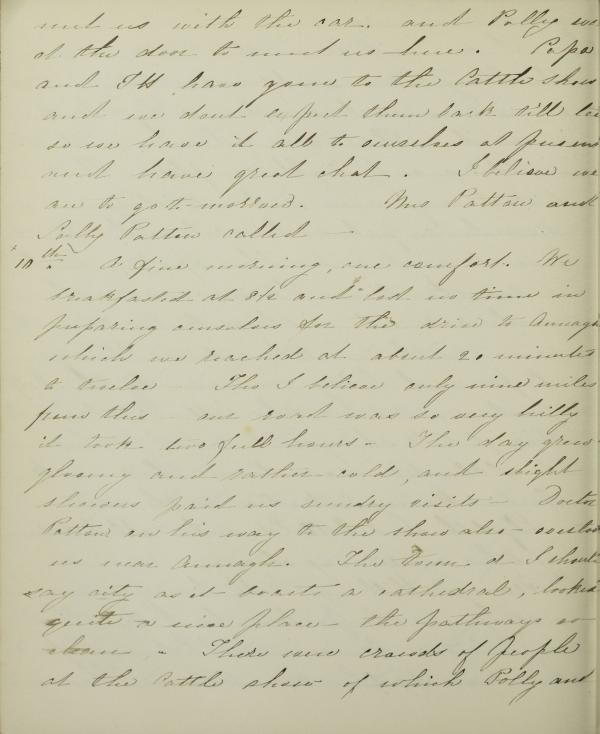 met us with the car. and Polly was
at the door to meet us here. Papa
and TH have gone to the Cattle show
and we dont expect them back till
so we have it all to ourselves at
and have great chat. I believe we
are to go to-morrow. Mrs Patton and
Polly Patton called —
10th. A fine morning, one comfort. We
breakfasted at 8½ and lost no time in
preparing ourselves for the drive to Armagh
which we reached at about 20 minutes
to twelve — Tho I believe only nine miles
from this — our road was so very hilly
it took two full hours — The day grew
gloomy and rather cold, and slight
showers paid us sundry visits — Doctor
Patton on his way to the show also
us near Armagh. The town or I should
say city as it boasts a cathedral, looked
quite a nice place — the pathways so
clean — There were crowds of People
at the Cattle show of which Polly and